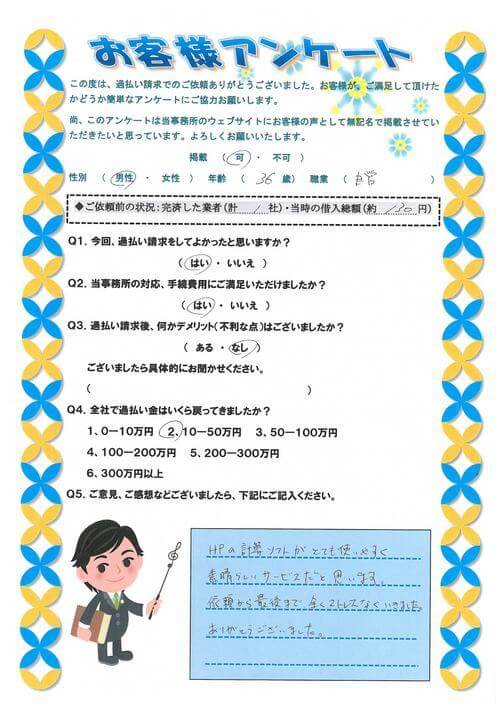 お客様アンケート
この度は、過払い請求でのご依頼ありがとうございました。お客様が、ご満足して頂けた
かどうか簡単なアンケートにご協力お願いします。
尚、このアンケートは当事務所のウェブサイトにお客様の声として無記名で掲載させてい
ただきたいと思っています。よろしくお願いいたします。
掲載 ( 可 ・ 不可 )
性別 ( 男性 ・ 女性 ) 年齢 ( 36 歳) 職業 ( 自営 )
◆ご依頼前の状況:完済した業者(計 1 社)・当時の借入総額(約 130 円)
Q1. 今回、過払い請求をしてよかったと思いますか?
( はい ・ いいえ )
Q2. 当事務所の対応、手続費用にご満足いただけましたか?
( はい ・ いいえ )
Q3. 過払い請求後、何かデメリット(不利な点)はございましたか?
( ある ・ なし )
ございましたら具体的にお聞かせください。
( )
Q4. 全社で過払い金はいくら戻ってきましたか?
1、0-10万円 2、10-50万円 3、50-100万円
4、100-200万円 5、200-300万円
6、300万円以上
Q5. ご意見、ご感想などございましたら、下記にご記入ください。
HPの計算ソフトがとても使いやすく
素晴らしいサービスだと思います。
依頼から最後まで全くストレスなくいきました。
ありがとうございました。